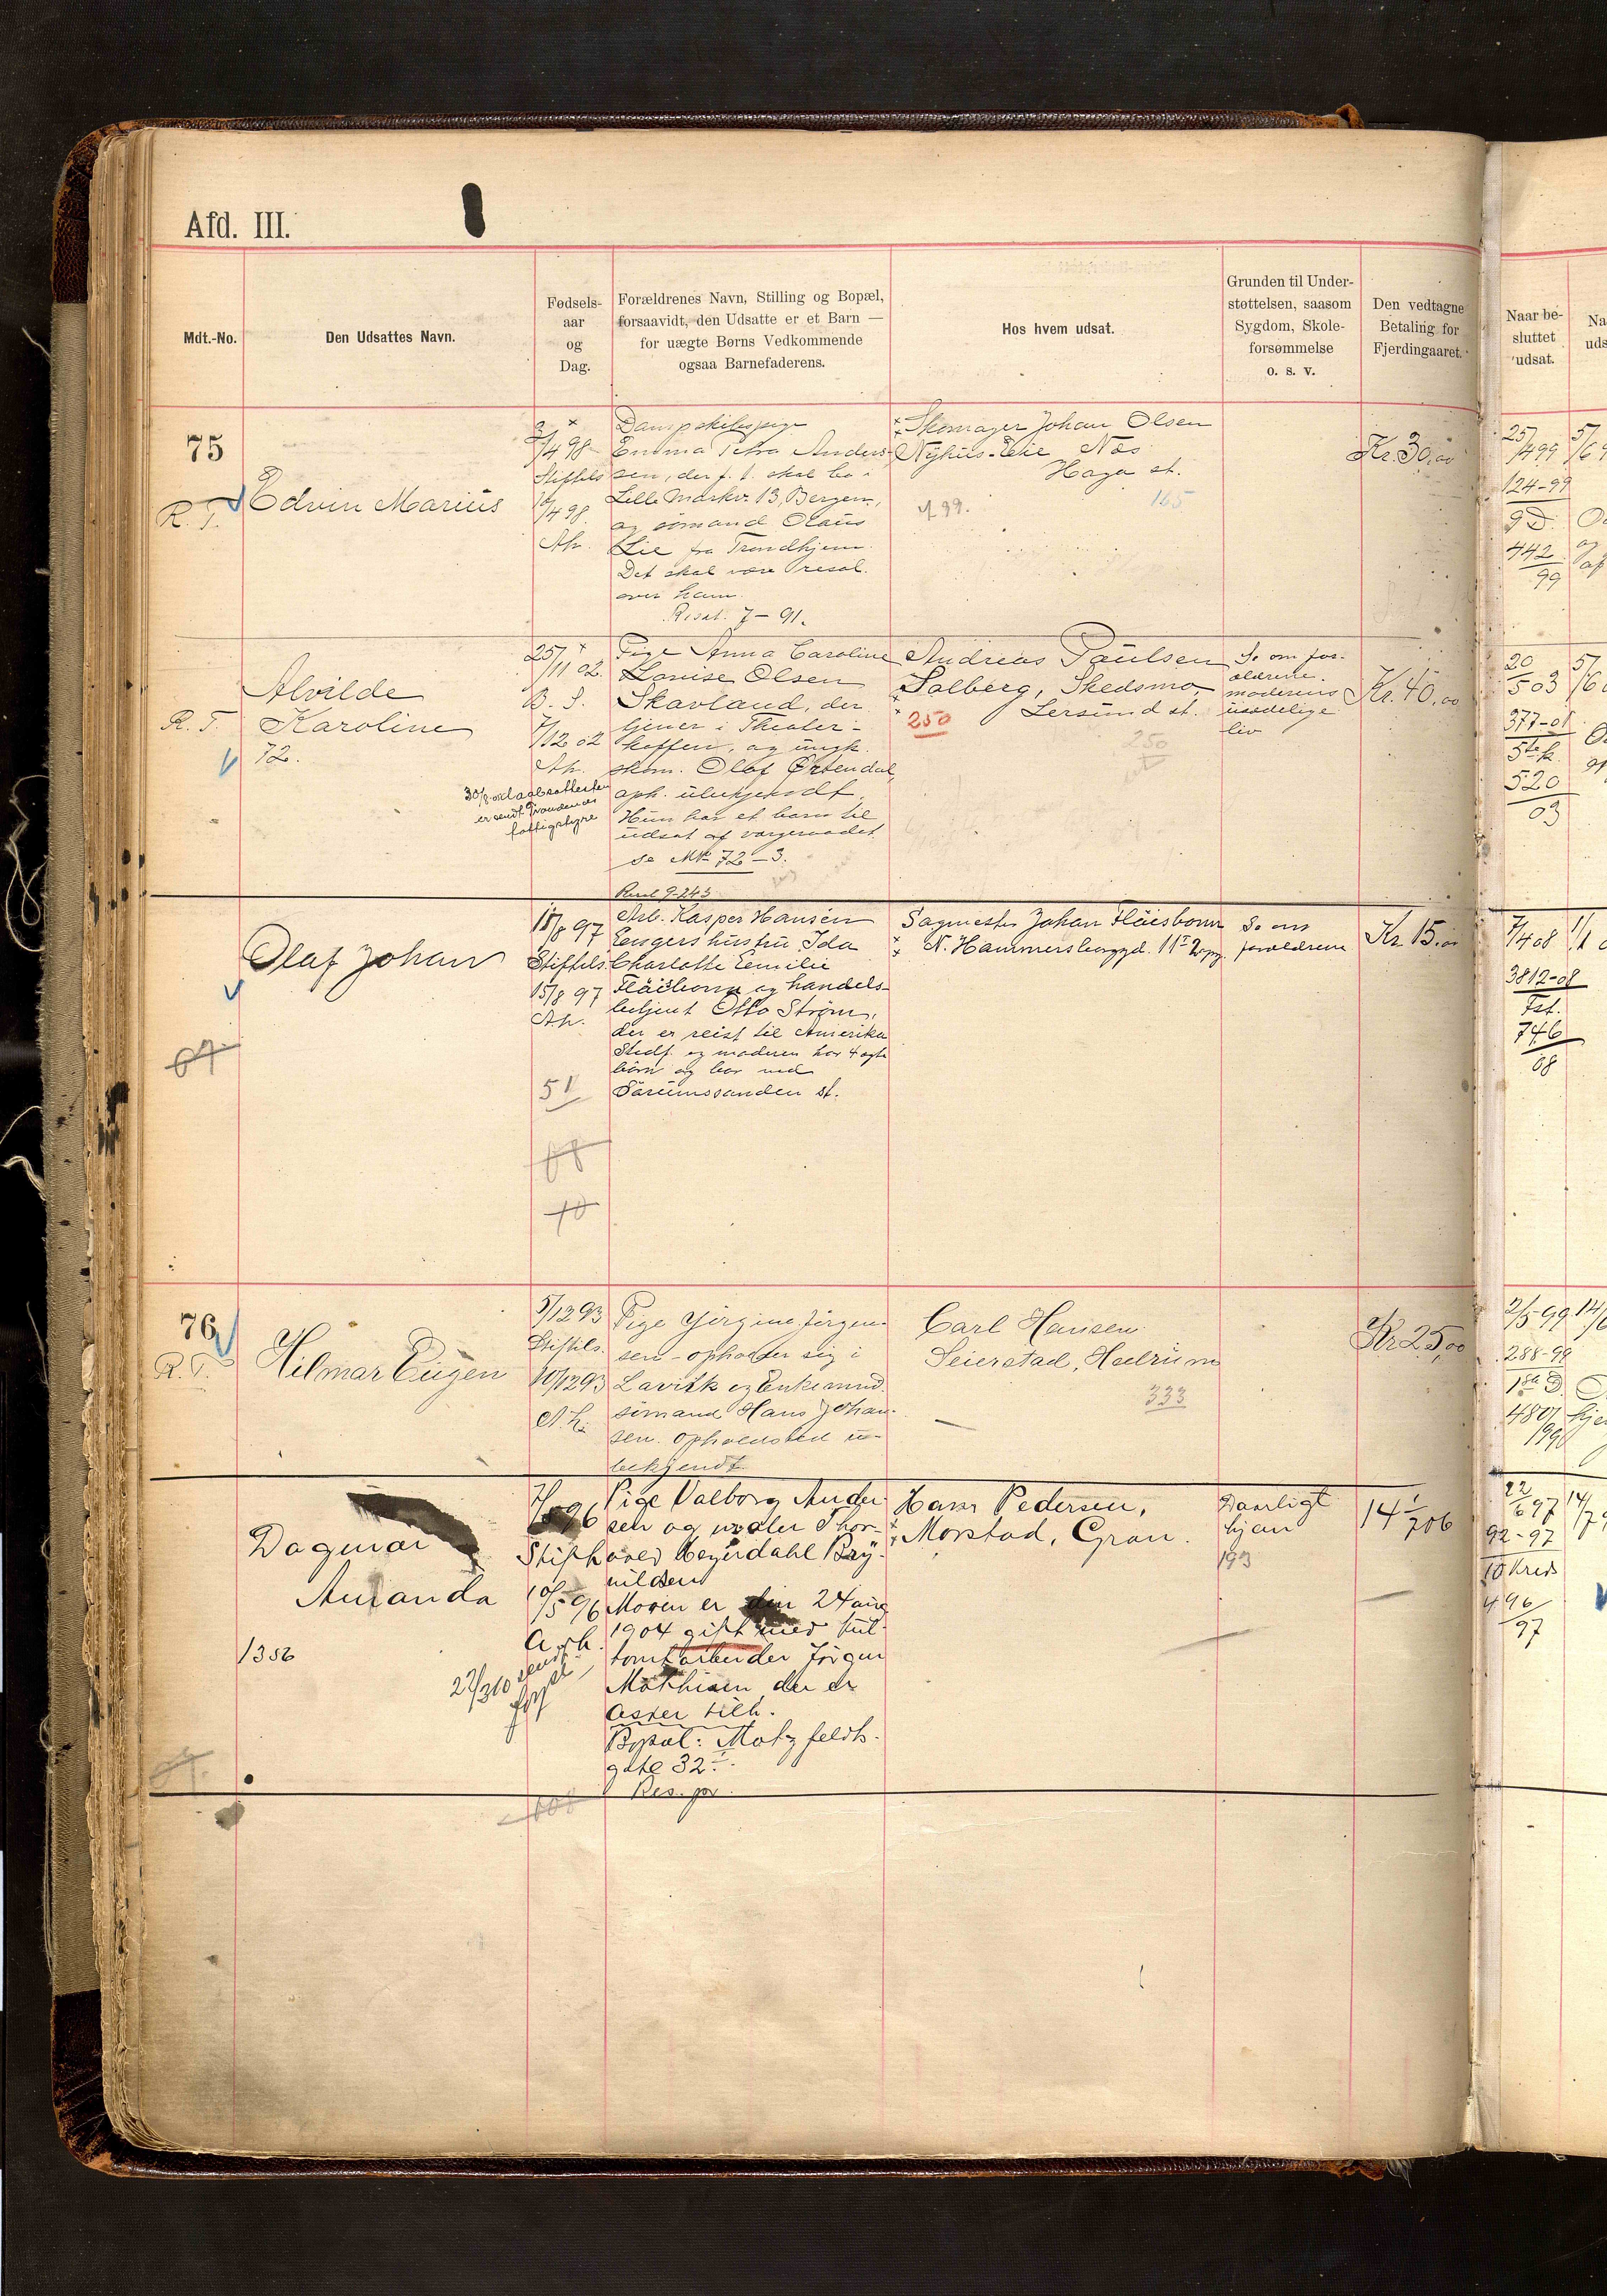 Afd. III.
Mdt.-No.
Den Udsattes Navn.
Fødsels-
aar
og
Dag.
Forældrenes Navn, Stilling og Bopæl,
forsaavidt, den Udsatte er et Barn —
for uægte Børns Vedkommende
ogsaa Barnefaderens.
Hos hvem udsat.
Grunden til Under-
støttelsen, saasom
Sygdom, Skole-
forsømmelse
o. s. v.
Den vedtagne
Betaling for
Fjerdingaaret.
Naar be-
sluttet
udsat.
75
R. T.
Edvin Marius
/4 98
Stiftels
/4 98.
Ah.
Dampskibspige
Emma Petra Anders-
sen, der f. t. skal bo i
Lille Markv. 13, Bergen,
og sömand Olaus
Lie fra Trondhjem.
Det skal være resol.
over ham.
Resol. 7-91.
Skomager Johan Olsen
Nykus-Eie Nes
Haga st.
165
Kr. 30,00
25/4 99
124-99
9 D.
442
99
R. T.
Alvilde
Karoline
72.
25/11 02.
B. S.
7/12 02
Ah.
30/8 daabsattesten
er sendt
fattigstyre
Pige Anna Caroline
Lovise Olsen
Skavland, der
tjener i Theater-
kaffeen, og ungk.
skom. Olaf Ørtendal,
oph. ubekjendt.
Hun har et barn til
udsat af vergeraadet
se Mk 72-3.
Andreas Paulsen
Solberg, Skedsmo,
Lersund st.
250
250
Se om for-
ældrene.
moderens
usædelige
liv
Kr. 40,00
20/5 03
377-01
5te k.
520
03
Olaf Johan
15/8 97
Stiftels
15/8 97
Ah.
51
68
10
Resol 9-243
Arb. Kasper Hansen
Engers hustru Ida
Charlotte Emilie
Fläisbonn og handels-
betjent Otto Ström,
der er reist til Amerika
Stedf. og moderen har 4 ægte
börn og bor ved
Sörumssanden st.
Sagmester Johan Fläisbonn
N. Hammersborggd. 11
Se om
forældrene
Kr. 15.00
7/4 08
3812-08
Fst.
746
08
76
R. T.
Hilmar Eugen
5/12 93
Stiftels.
10/12 93
A. h.
Pige Jörgine Jörgen-
sen - opholder sig i
Larvik og Enkemand
sömand Hans Johan-
sen. Opholdsted u-
bekjendt
Carl Hansen
Seierstad, Hedrum
333
Kr 25,00
2/5-99
288-99
1ste D.
480
Dagmar
Amanda
1356
7/5 96
Stift
10/5 96
A. h.
Pige Valborg Ander
sen og maler Thor-
vald Heyerdahl Bry-
nildsen
Moren er den 24 aug
1904 gift med
tomtarbeider Jörgen
Mathisen der er
Asker tilh.
Bopæl: Motzfeldts-
gate 32 I.
Res. pr.
Hans Pedersen,
Morstad, Gran.
Daarligt
hjem
193
14 1/7 06
22/6 97
92-97
10 Kreds
496
97